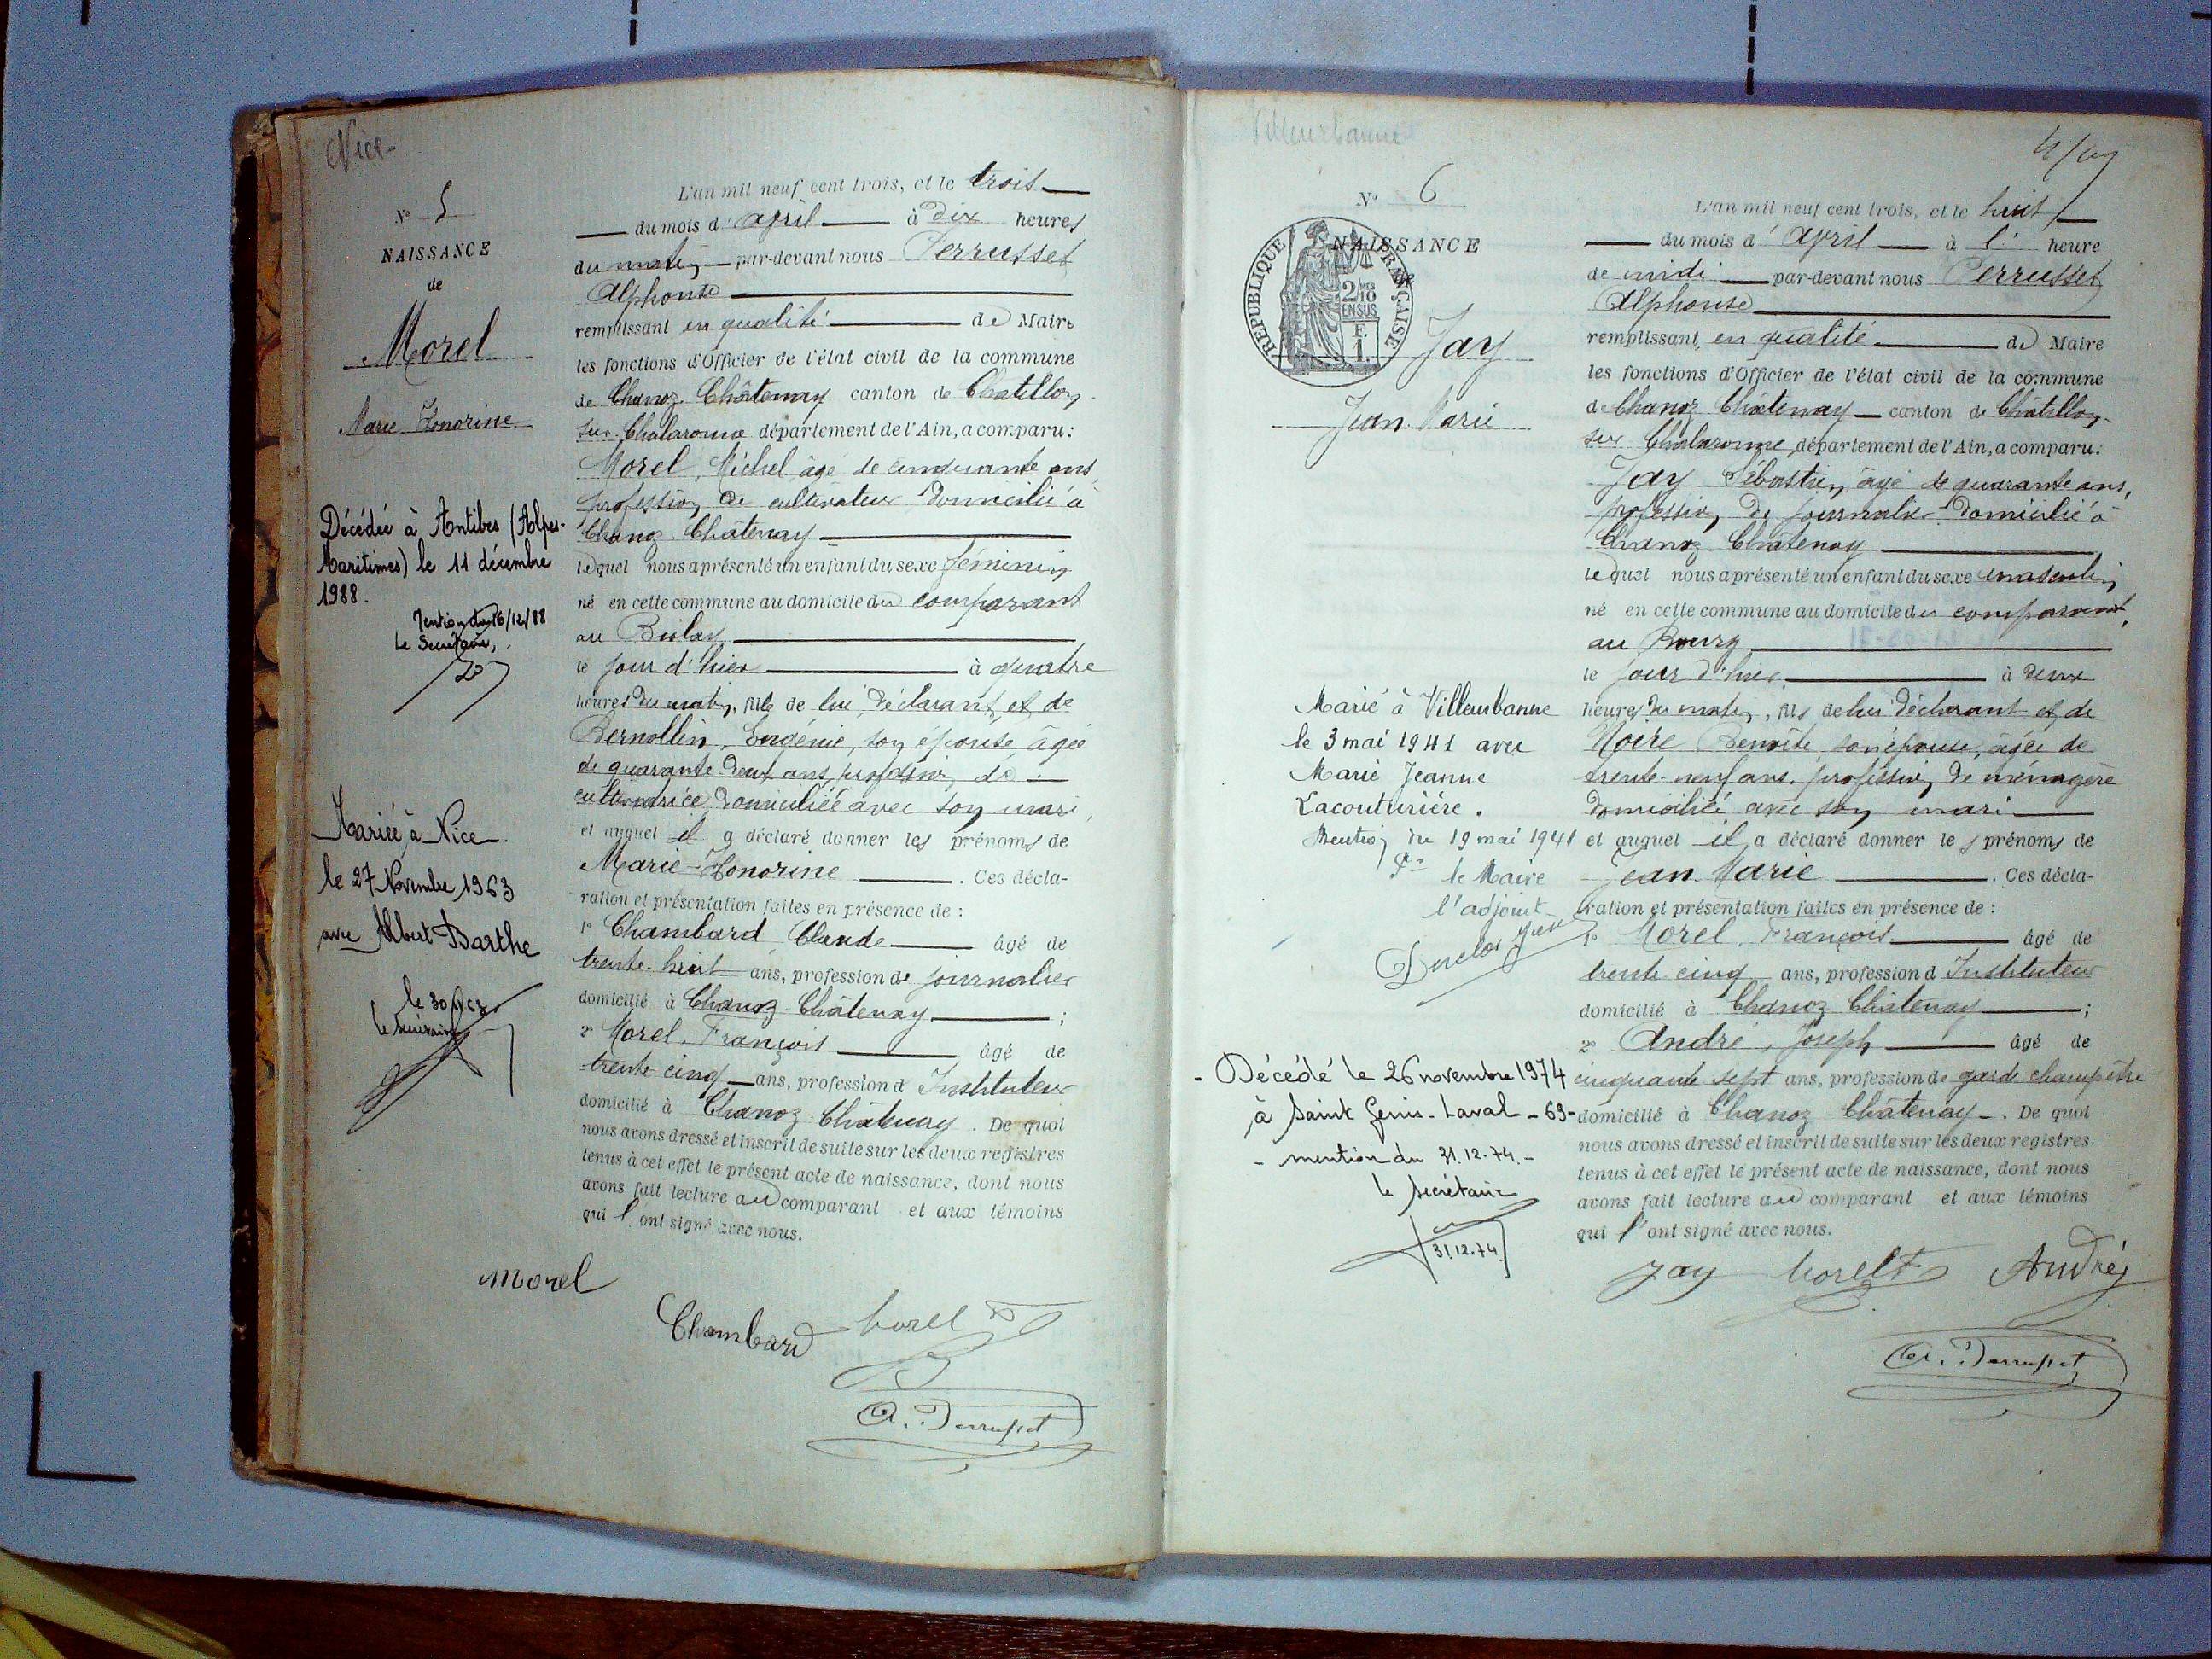 Nice
N° 5
NAISSANCE
de
Morel
Marie Honorine
Décédée à Antibes (Alpes-
Maritimes) le 11 décembre
1988.
Mention du 16/12/88
Le Secrétaire,
Mariée à Nice
le 27 Novembre 1963
avec Albert Barthe
le secrétaire
L'an mil neuf cent trois, et le trois
du mois d'april à dix heures
du matin par-devant nous Perrusset
Alphonse
remplissant en qualité de Maire
les fonctions d'Officier de l'état civil de la commune
de Chanoz Châtenay canton de Chatillon
sur Chalaronne département de l'Ain, a comparu :
Morel, Michel âgé de cinquante ans,
profession de cultivateur domicilié à
Chanoz Châtenay
lequel nous a présenté un enfant du sexe féminin
né en cette commune au domicile du comparant
au Biolay
le jour d'hier à quatre
heures du matin, fille de lui, déclarant, et de
Bernollin, Eugénie, son épouse, âgée
de quarante deux ans, profession de
cultivatrice domiciliée avec son mari,
et auquel il a déclaré donner les prénoms de
Marie-Honorine . Ces décla-
ration et présentation faites en présence de :
1° Chambard Claude âgé de
trente-huit ans, profession de journalier
domicilié à Chanoz Châtenay ;
2° Morel, François âgé de
trente cinq ans, profession d Instituteur
domicilié à Chanoz Châtenay . De quoi
nous avons dressé et inscrit de suite sur les deux registres
tenus à cet effet le présent acte de naissance, dont nous
avons fait lecture au comparant et aux témoins
qui l'ont signé avec nous.
Morel
Chambard Morel F
A. Perrusset
Villeurbanne
N° 6
NAISSANCE
de
REPUBLIQUE FRANÇAISE
2/10
EN SUS
F.
1.
Jay
Jean Marie
Marié à Villeurbanne
le 3 mai 1941 avec
Marie Jeanne
Lacouturière.
Mention du 19 mai 1941
Pr le Maire
l'adjoint
- Décédé le 26 novembre 1974
à Saint Genis-Laval - 69-
- mention du 31.12.74. -
le secrétaire
31.12.74
L'an mil neuf cent trois, et le huit
du mois d'april à l' heure
de midi par-devant nous Perrusset
Alphonse
remplissant en qualité de Maire
les fonctions d'Officier de l'état civil de la commune
de Chanoz Châtenay canton de Châtillon
sur Chalaronne, département de l'Ain, a comparu :
Jay Sébastien, âgé de quarante ans,
profession de journalier domicilié à
Chanoz Châtenay
lequel nous a présenté un enfant du sexe masculin
né en cette commune au domicile du comparant,
au Bourg
le jour d'hier à deux
heures du matin, fils de lui déclarant et de
Noire Benoîte son épouse, âgée de
trente-neuf ans, profession de ménagère
domiciliée avec son mari
et auquel il a déclaré donner les prénoms de
Jean Marie . Ces décla-
ration et présentation faites en présence de :
1° Morel, François âgé de
trente cinq ans, profession d Instituteur
domicilié à Chanoz Châtenay ;
2° André, Joseph âgé de
cinquante sept ans, profession de garde champêtre
domicilié à Chanoz Châtenay . De quoi
nous avons dressé et inscrit de suite sur les deux registres
tenus à cet effet le présent acte de naissance, dont nous
avons fait lecture au comparant et aux témoins
qui l'ont signé avec nous.
Jay Morel F André
A. Perrusset